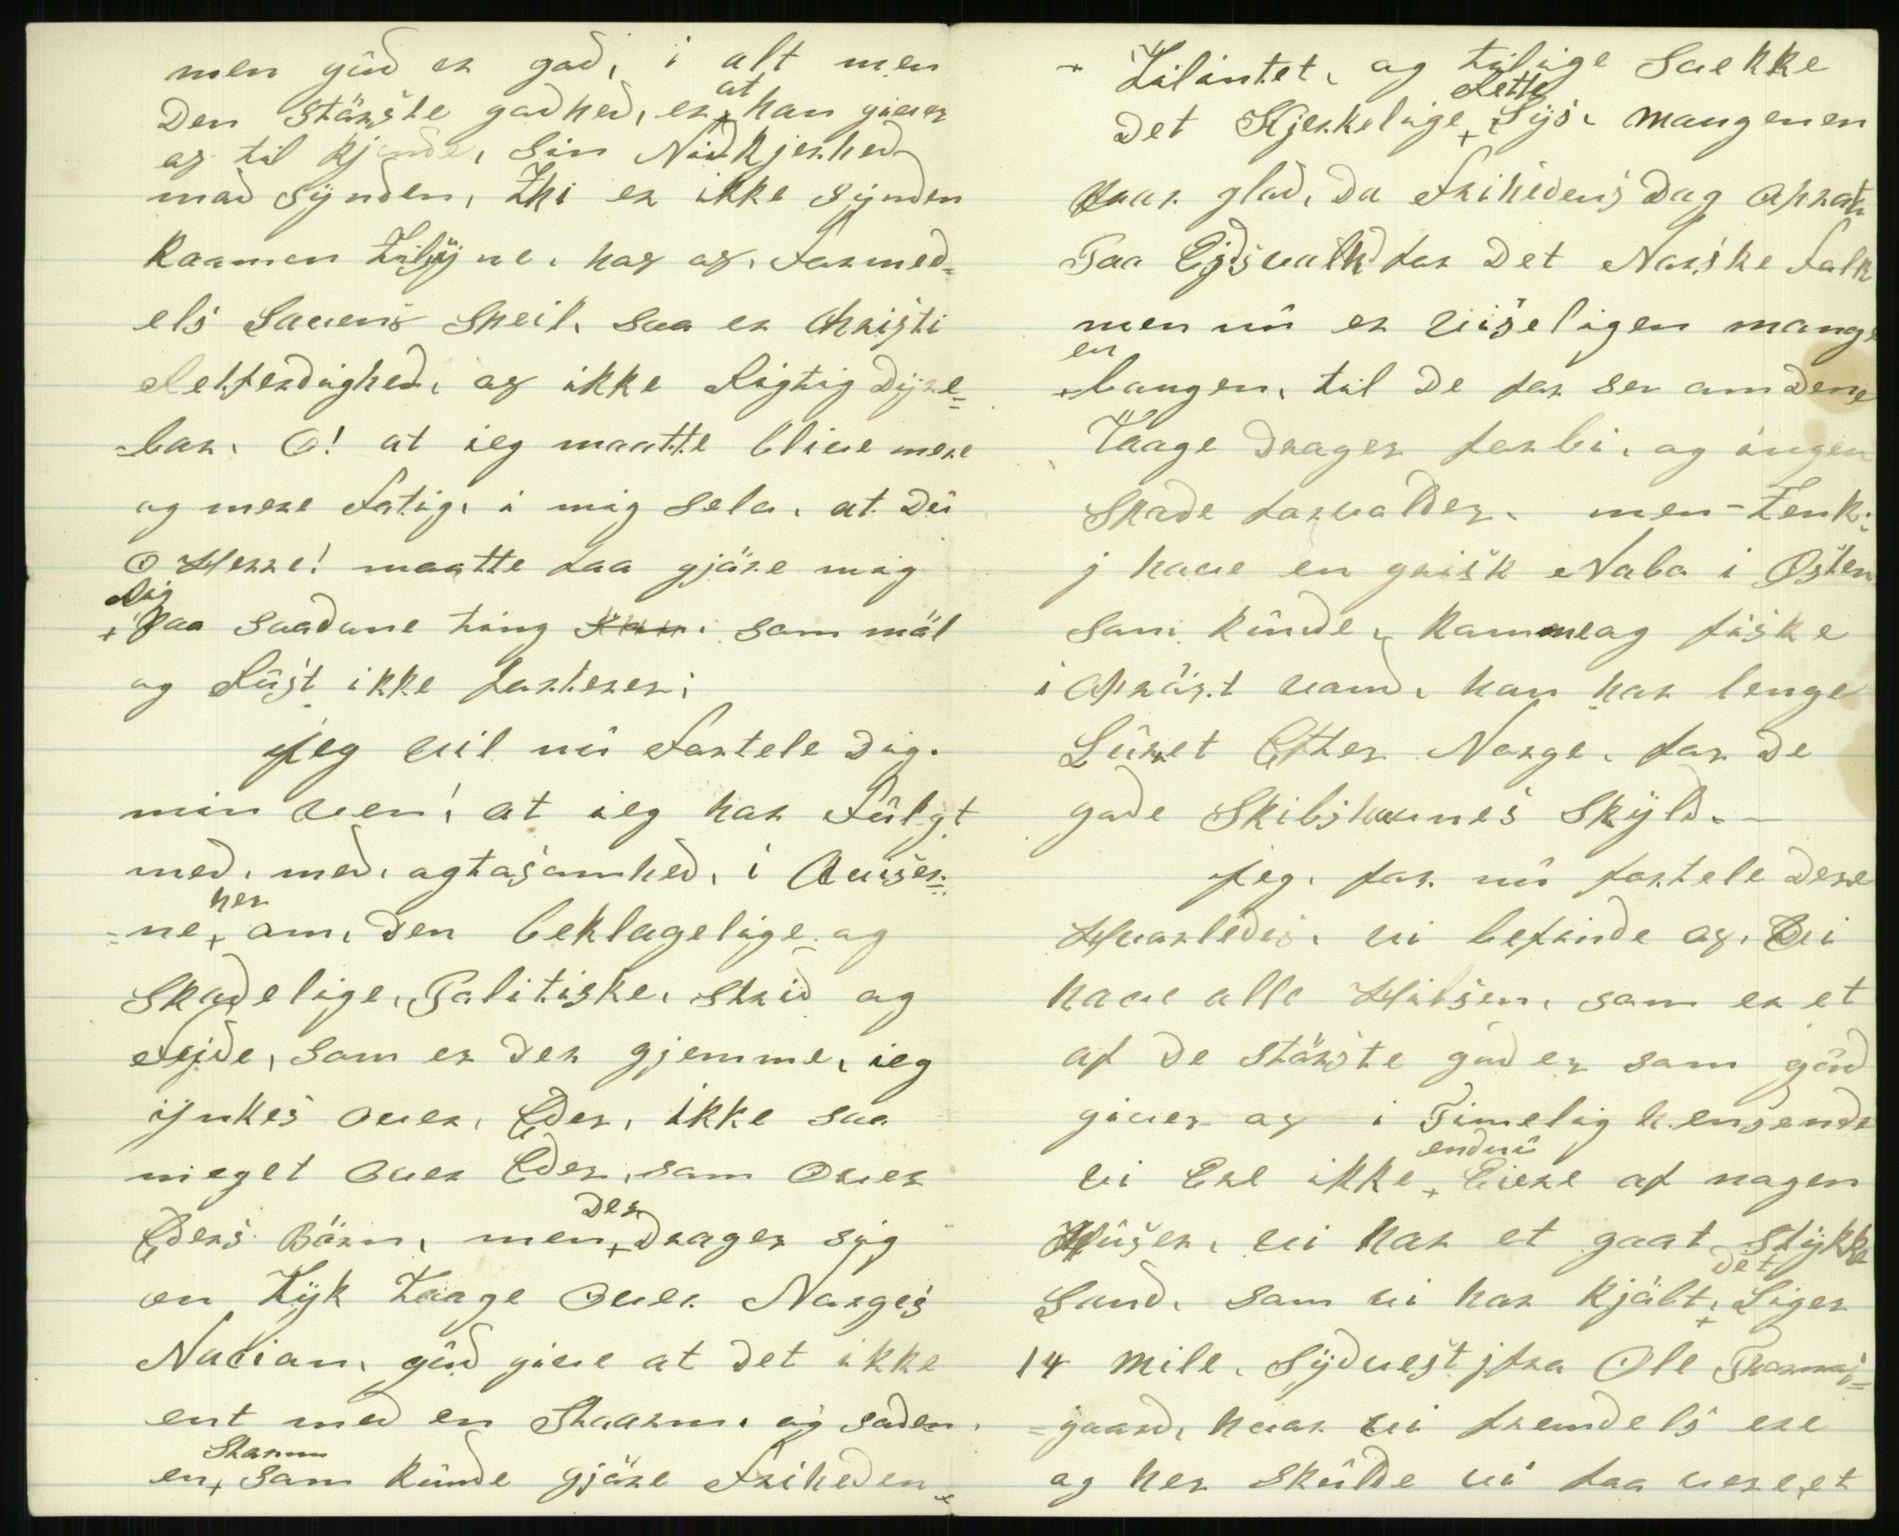 men gúd er god, i alt men
Den störste godhed, er at han giver
os til kjende, sin Nidkjerhed
mod Synden, Thi er ikke Synden
kommen Tilsyne, hos os, formed=
els Lovens Speil, saa er Christi
Retferdighed, os ikke Rigtig Dyre=
=bar. O! at ieg maatte blive mere
og mere Fatig, i mig Selv, at Dú
O Herre! maatte faa gjöre mig
Rig
+ paa saadane ting som möl
og Rúst ikke forterer;
jeg vil nú Fortele Dig.
min ven! at ieg har Fúlgt
med, med, agtasomhed, i Aviser=
=ne + her om, den beklagelige og
Skadelige, Politiske, strid og
Fejde, som er der hjemme, ieg
ynkes over, Eder, ikke saa
meget over Eder, som over
Eders Börn, men + der drager sig
en Tyk Taage over Norges
Nacion, gúd give at det ikke
ent med en Stoorm, og soden
en + Storm som kúnde gjöre Friheden
+ Tilintet, og tilige Slekke
Det Kjerkelige + Rette Lys, mangen en
var glad, Da Frihedens Dag oprat
Paa Ejdsvold for Det Norske Folk
men nú er viseligen mange
+ en bangen, til De for ser om Dene
Taage Drager forbi, og ingen
Skade forvolder, men - Tenk;
j have en grisk Nabo i Östen
som kúnde, komme og fiske
i Oprört vand, han har lenge
Lúret Efter Norge, for De
gode Skibshavnes Skyld. -
jeg, for nú fortele Dere
Hvorledes, vi befinde os, vi
have alle Hilsen, som er et
af De störste goder som gúd
giver os i Timelig hensende
vi Ere ikke + endnú Eiere af nogen
Húser, vi har et goot Stykke
Land, som vi har kjöbt, + det Liger
14 Mile, Sydvest jfra Ole Thormos=
=gaard, hvor vi fremdels ere
og her Skúlde vi faa vere, et